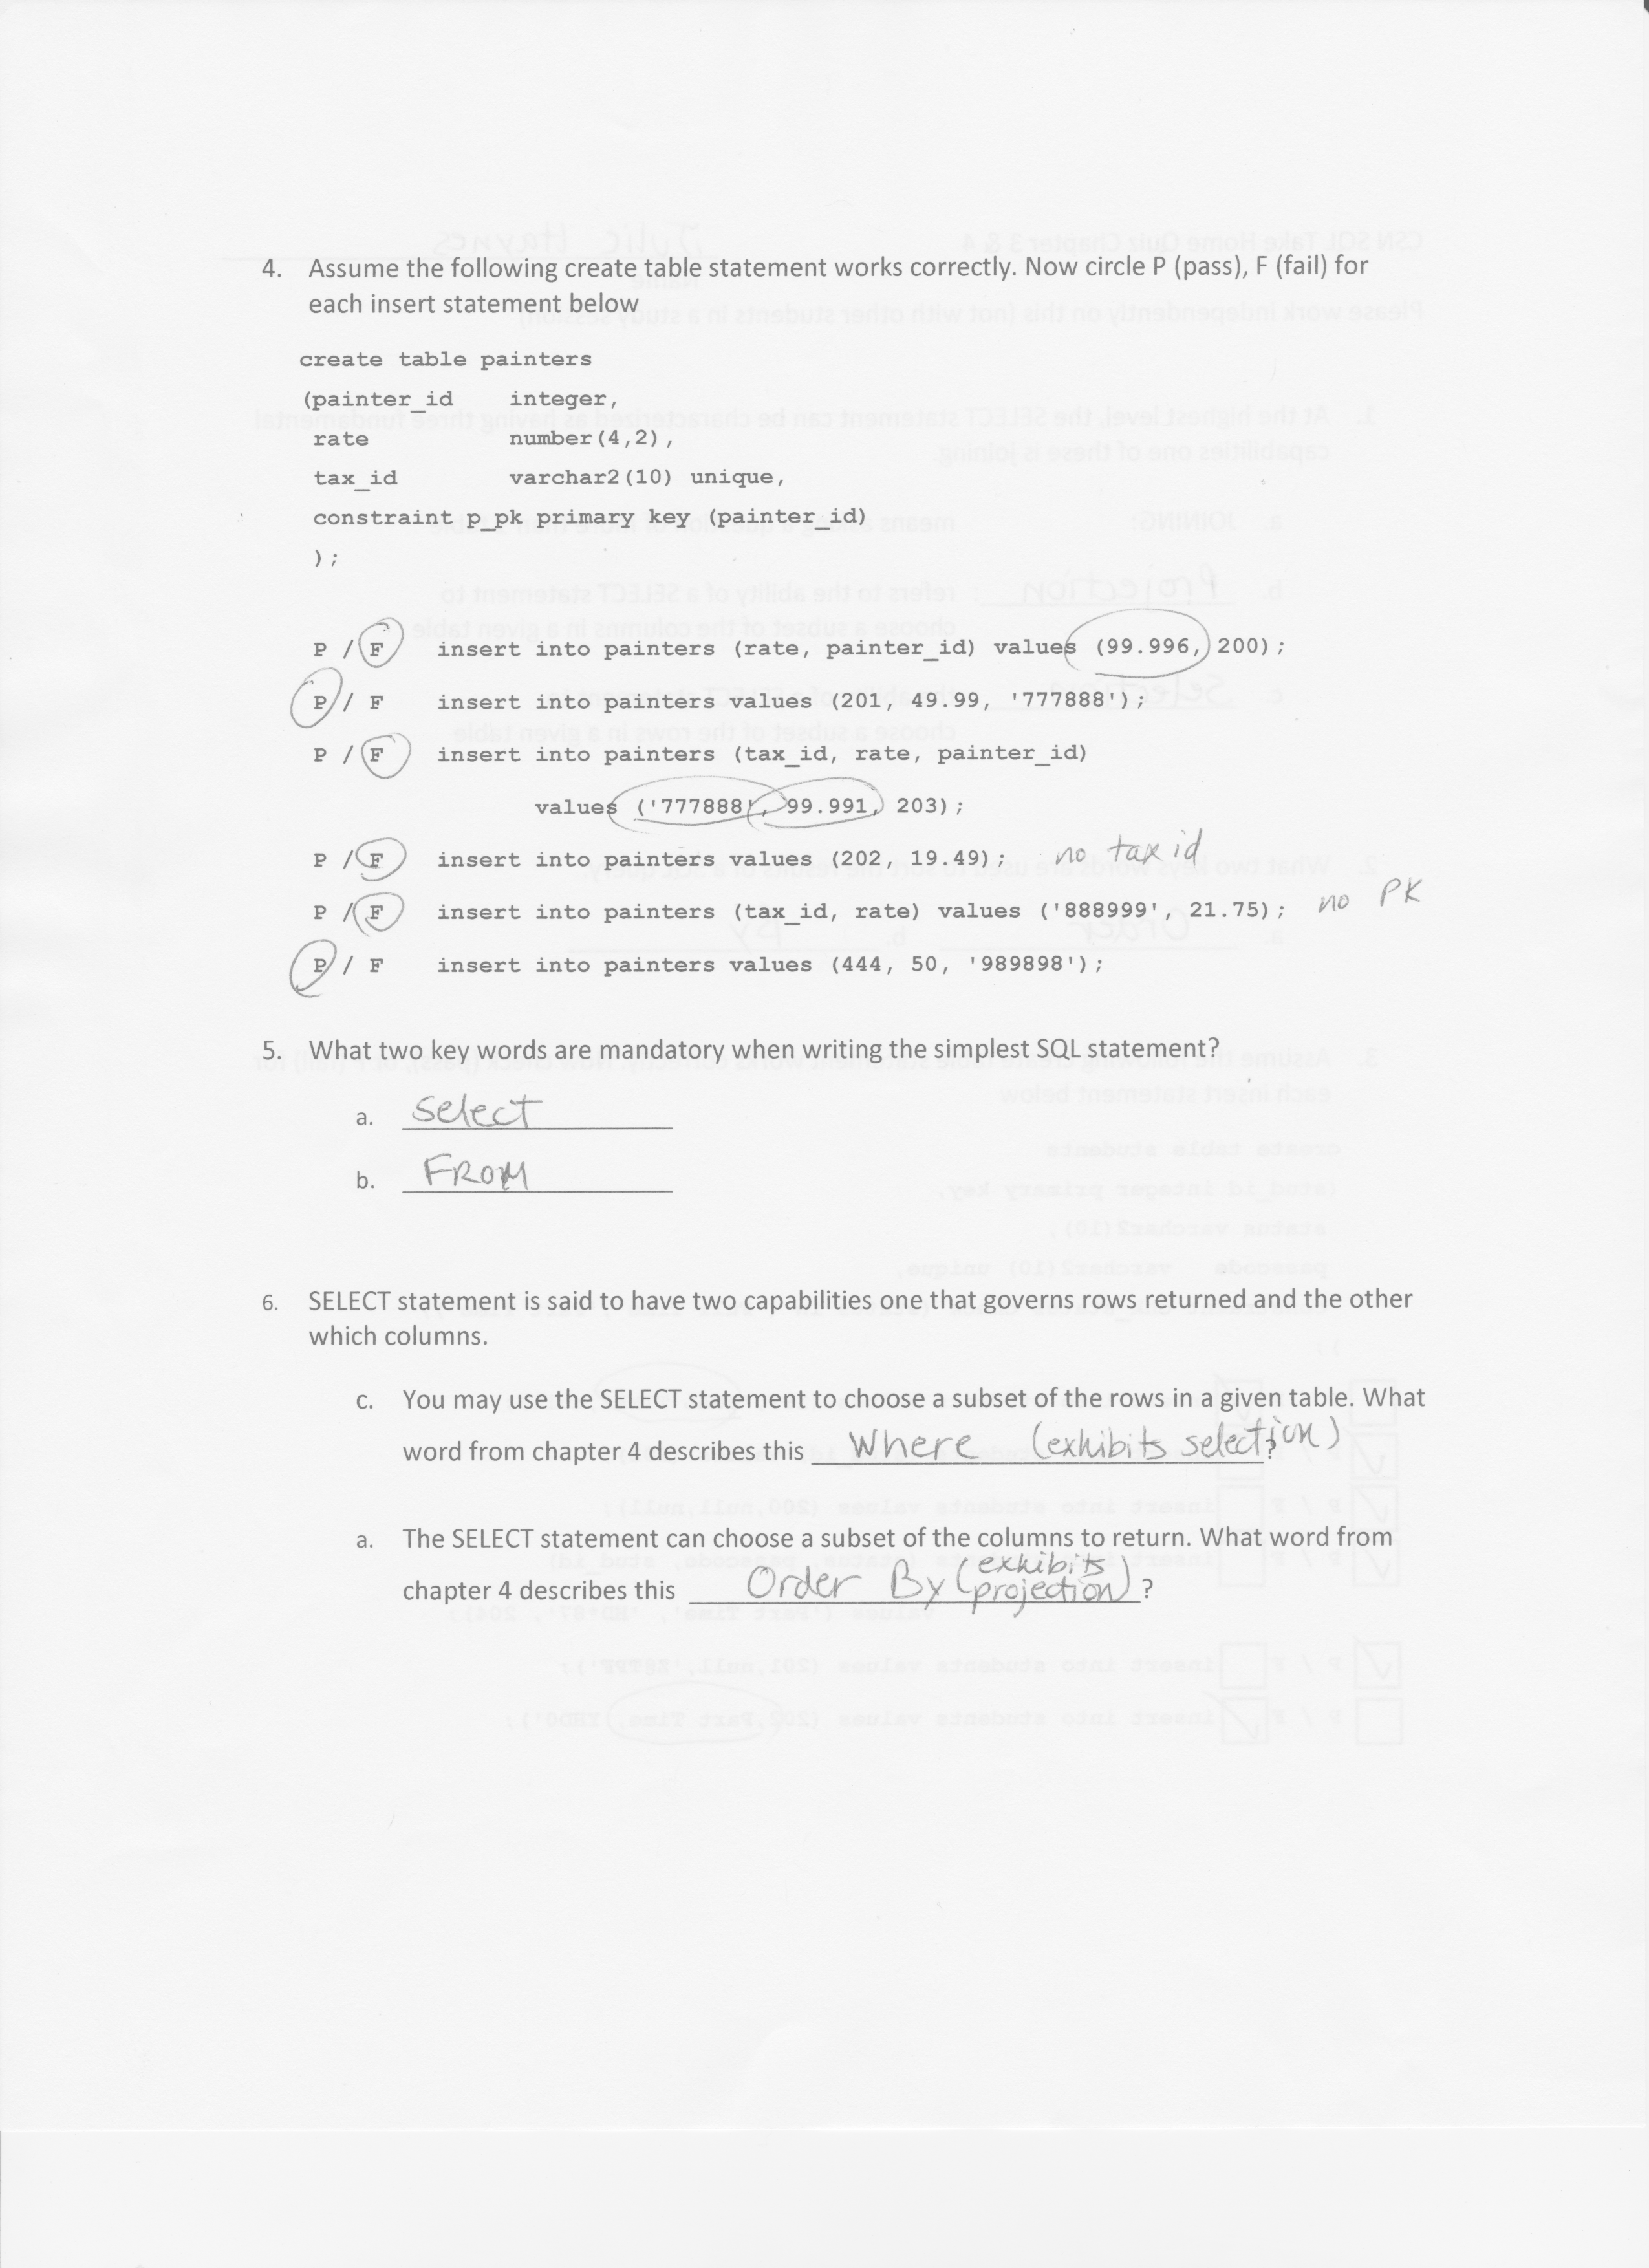 4. Assume the following create table statement works correctly. Now circle P (pass), F (fail) for
each insert statement below
create table painters
(painter_id integer,
rate number(4,2),
tax_id varchar2(10) unique,
constraint p_pk primary key (painter_id)
);
P / F insert into painters (rate, painter_id) values (99.996, 200);
P / F insert into painters values (201, 49.99, '777888');
P / F insert into painters (tax_id, rate, painter_id)
values ('777888', 99.991, 203);
P / F insert into painters values (202, 19.49); no tax id
P / F insert into painters (tax_id, rate) values ('888999', 21.75); no PK
P / F insert into painters values (444, 50, '989898');
5. What two key words are mandatory when writing the simplest SQL statement?
a. Select
b. FROM
6. SELECT statement is said to have two capabilities one that governs rows returned and the other
which columns.
c. You may use the SELECT statement to choose a subset of the rows in a given table. What
word from chapter 4 describes this Where (exhibits selection)?
a. The SELECT statement can choose a subset of the columns to return. What word from
chapter 4 describes this Order By (exhibits projection)?